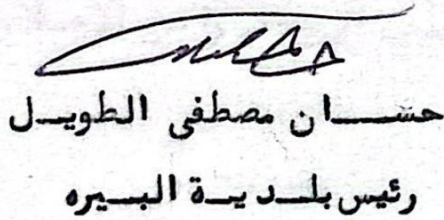 حسـان مصطفى الطويـل
رئيس بلـديـة البـيره